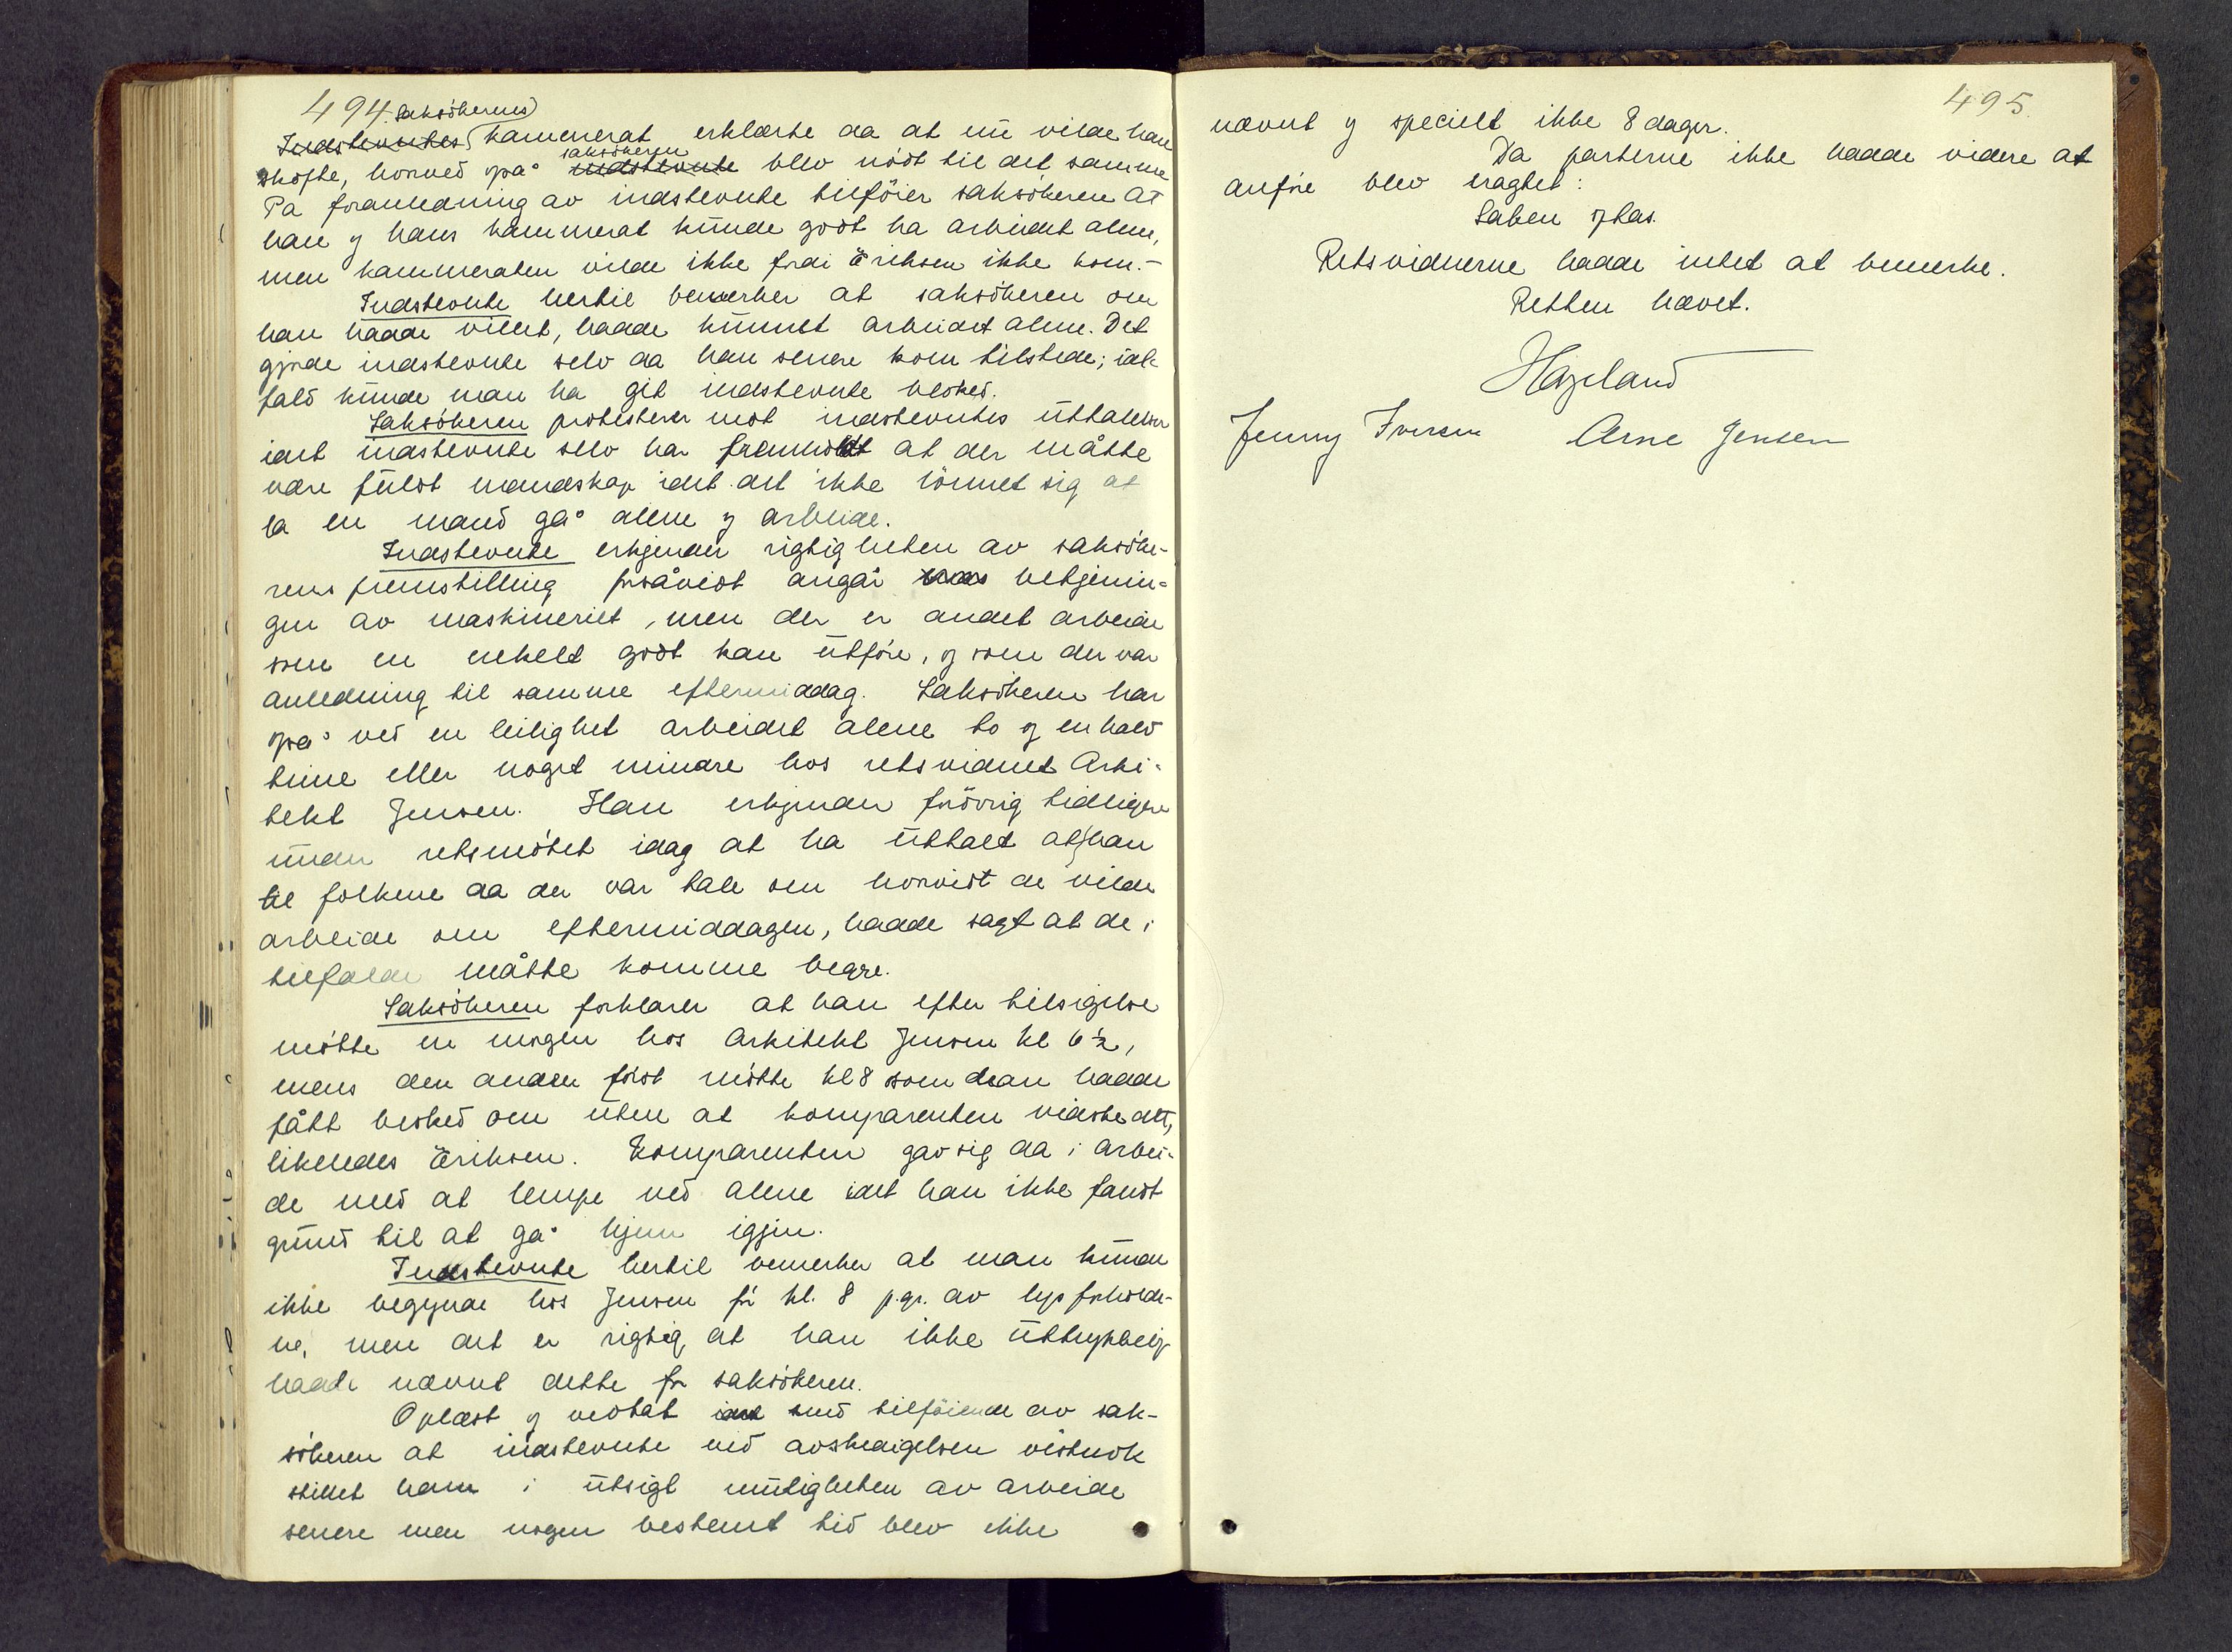 494. Saksökerens
Indstevntes kammerat erklærte da at nu vilde han
skofte, hvorved også saksökeren indstevnte blev nödt til det samme
På foranledning av indstevnte tilföier saksökeren at
han og hans kammerat kunde godt ha arbeidet alene,
men kammeraten vilde ikke fordi Eriksen ikke kom.-
Indstevnte hertil bemerker at saksökeren om
han hadde villet, hadde kunnet arbeidet alene. Det
gjorde indstevnte selv da han senere kom tilstede; ial-
fald kunde man ha git indstevnte besked.
Saksökeren protesterer mot indstevntes uttalelser
idet indstevnte selv har fremholdt at der måtte
være fuldt mandskap idet det ikke lönnet sig at
la en mand gå alene og arbeide.
Indstevnte erkjender rigtigheten av saksöke-
rens fremstilling forsåvidt angår betjenin-
gen av maskineriet, men der er andet arbeide
som en enkelt godt kan utföre, og som der var
anledning til samme eftermiddag. Saksökeren har
også ved en leilighet arbeidet alene to og en halv
time eller noget mindre hos retsvidnet Arki-
tekt Jensen. Han erkjender forövrig tidligere
under retsmötet idag at ha uttalt at han
til folkene da der var tale om hvorvidt de vilde
arbeide om eftermiddagen, hadde sagt at de i
tilfælde måtte komme begge.
Saksökeren forklarer at han efter tilsigelse
mötte en morgen hos Arkitekt Jensen kl 6½,
mens den anden först mötte kl 8 som han hadde
fått besked om uten at komparenten vidste det,
likeledes Eriksen. Komparenten gav sig da i arbei-
de med at lempe ved alene idet han ikke fandt
grund til at gå hjem igjen.
Indstevnte hertil bemerker at man kunde
ikke begynde hos Jensen för kl. 8 p.gr. av lysforholde-
ne, men det er rigtig at han ikke uttrykkelig
hadde nævnt dette for saksökeren.
Oplæst og vedtat med tilföiende av sak-
sökeren at indstevnte ved avskedigelsen vistnok
stillet ham i utsigt muligheten av arbeide
senere men nogen bestemt tid blev ikke
495.
nævnt og specielt ikke 8 dager.
Da parterne ikke hadde videre at
anföre blev eragtet:
Saken optas.
Retsvidnerne hadde intet at bemerke.
Retten hævet.
Hazeland
Jenny Iversen Arne Jensen